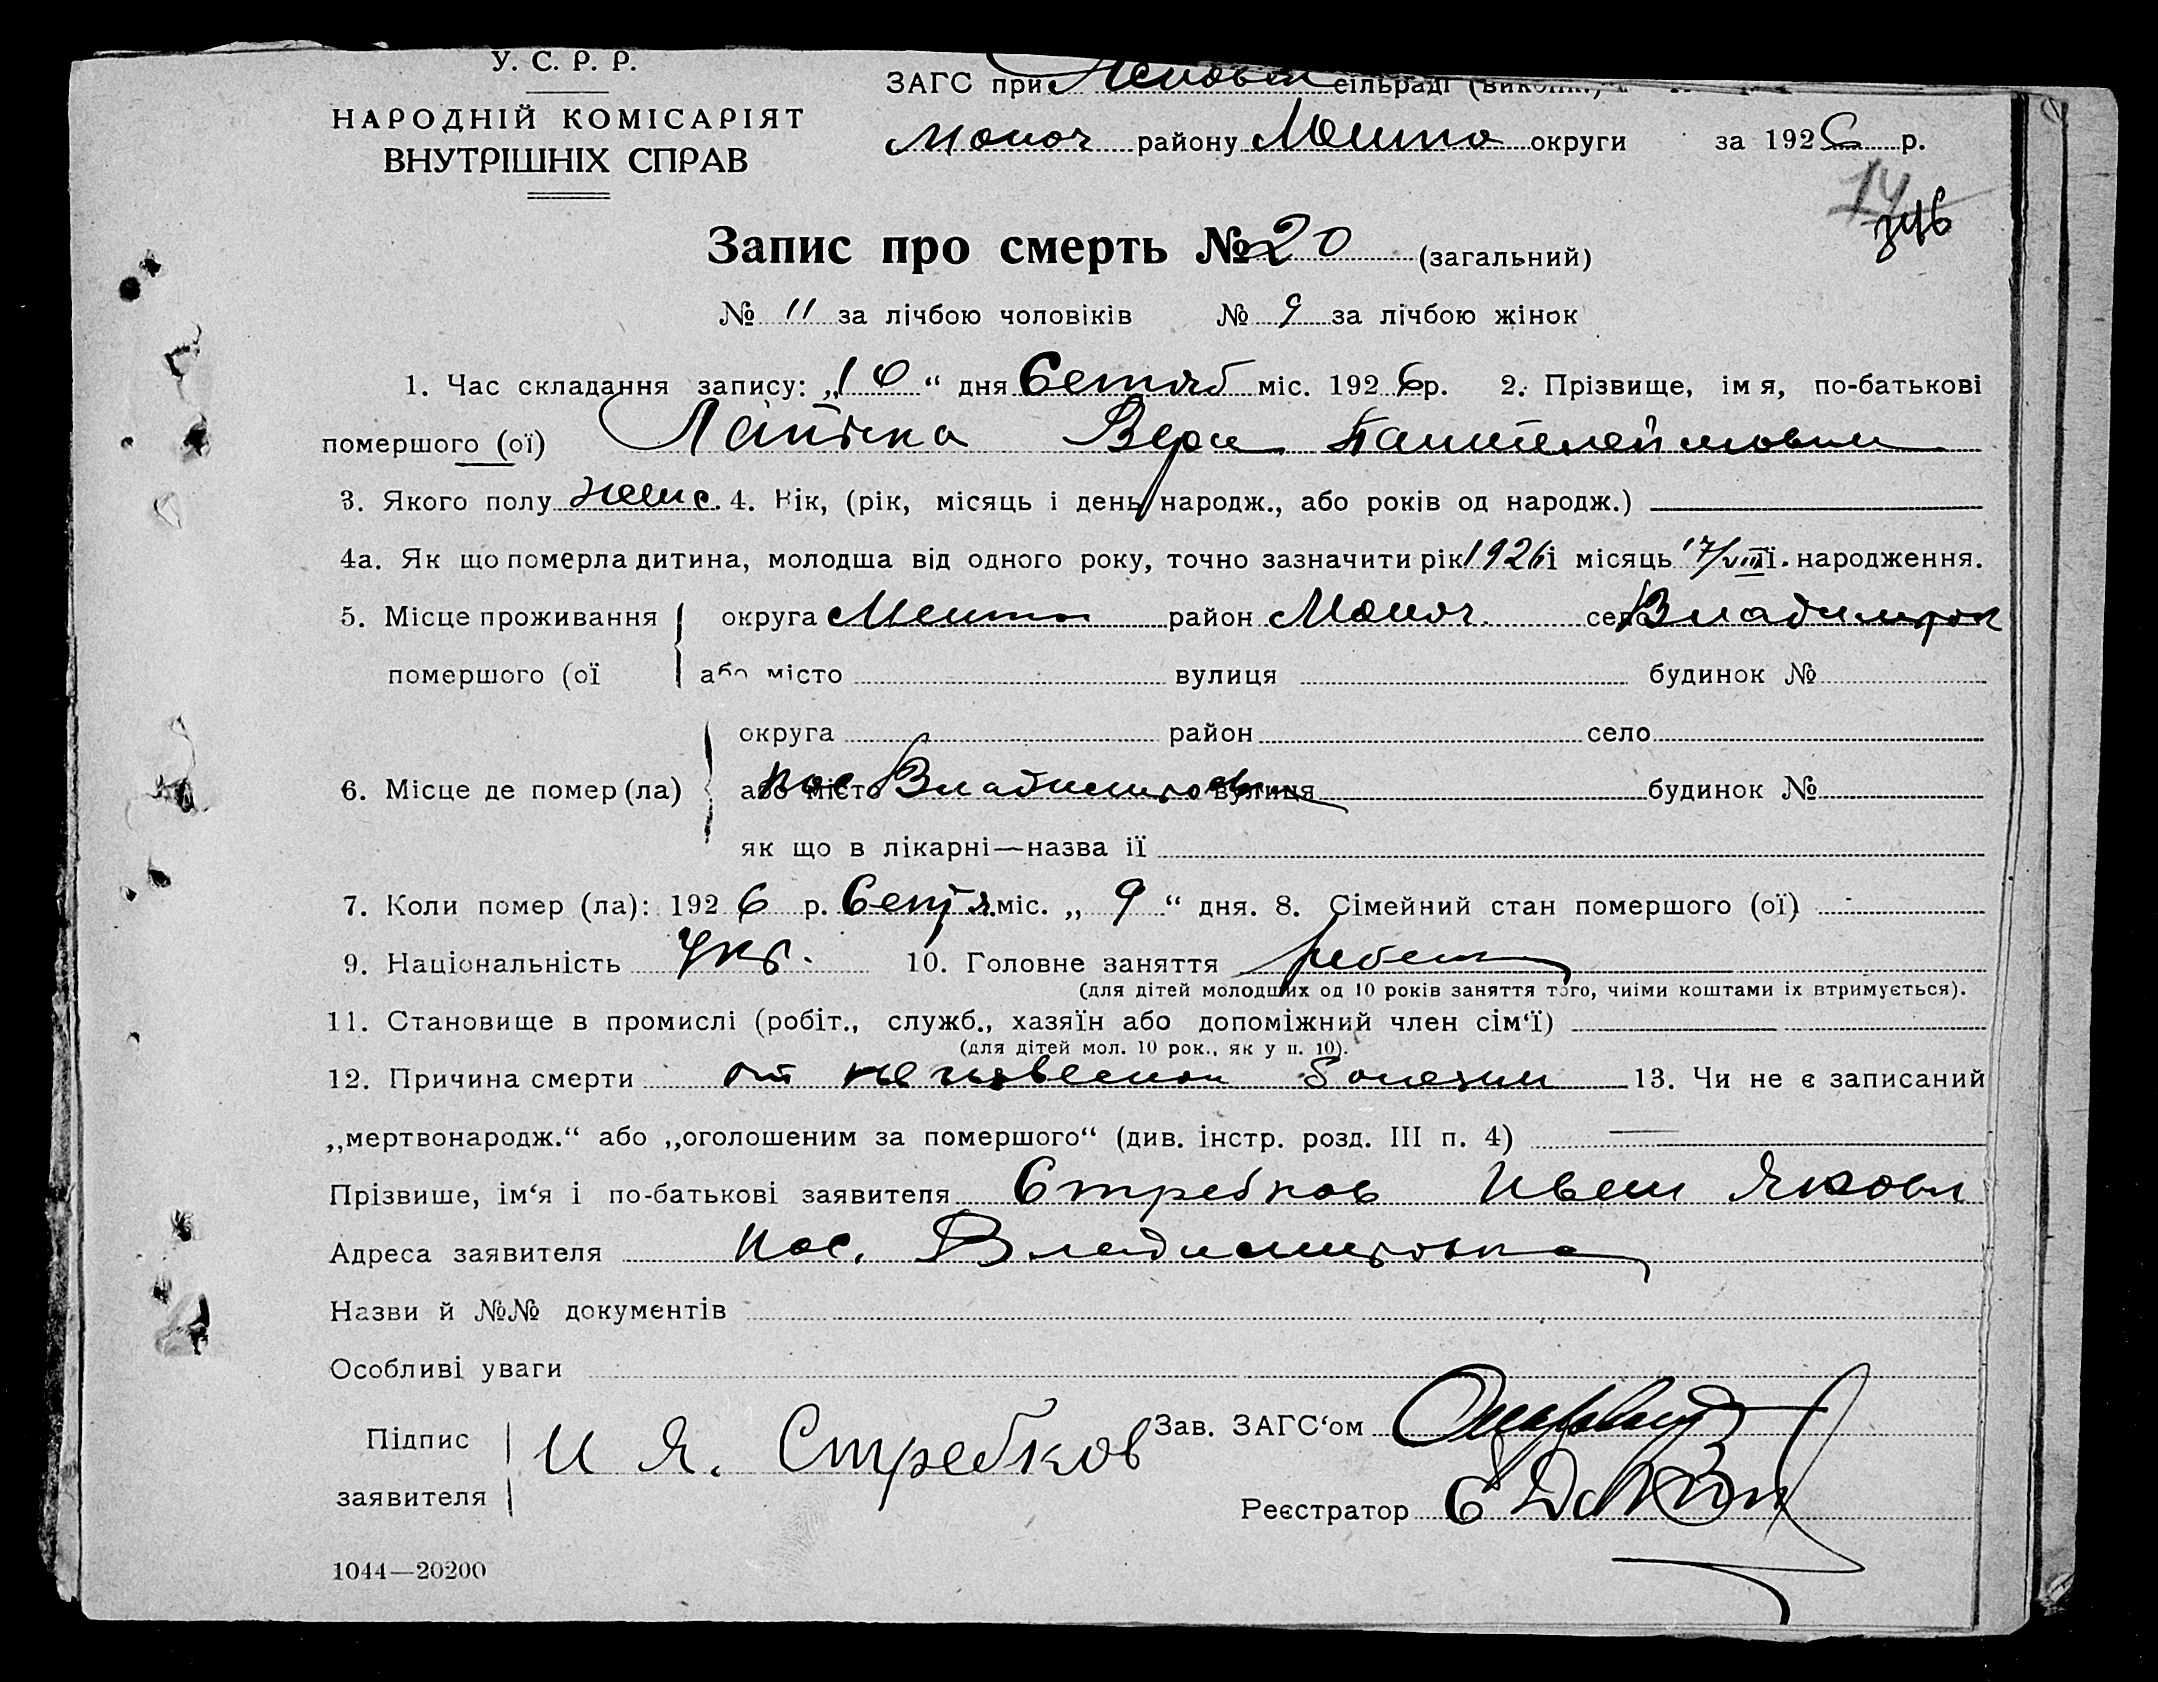 У. С. Р. Р.
НАРОДНІЙ КОМІСАРІЯТ
ВНУТРІШНІХ СПРАВ
ЗАГС при сільраді
Молоч району округи за 1926 р.
14
Запис про смерть № 20 (загальний)
№ 11 за лічбою чоловіків № 9 за лічбою жінок
1. Час складання запису: „10“ дня міс. 1926 р. 2. Прізвище, імя, по-батькові
помершого (ої) Вера
3. Якого полу женс. 4. Вік, (рік, місяць і день народж., або років од народж.)
4а. Як що померла дитина, молодша від одного року, точно зазначити рік 1926 і місяць 17/VIII ї. народження.
5. Місце проживання округа район Молоч. село
помершого (ої або місто вулиця будинок №
округа район село
6. Місце де помер (ла) або місто пос Владимировка вулиця будинок №
як що в лікарні—назва ії
7. Коли помер (ла): 1926 р. Сентя. міс. „ 9 “ дня. 8. Сімейний стан помершого (ої)
9. Національність Укр. 10. Головне заняття
(для дітей молодших од 10 років заняття того, чиіми коштами іх втримується).
11. Становище в промислі (робіт., служб., хазяїн або допоміжний член сім‘ї)
(для дітей мол. 10 рок., як у п. 10).
12. Причина смерти от болезни 13. Чи не є записаний
„мертвонародж.“ або „оголошеним за помершого“ (див. інстр. розд. III п. 4)
Прізвише, ім‘я і по-батькові заявителя Стребков Иван Яковл
Адреса заявителя пос. Владимировка
Назви й №№ документів
Особливі уваги
Підпис
заявителя
И Я. Стребков
Зав. ЗАГС‘ом
Реєстратор
1044—20200